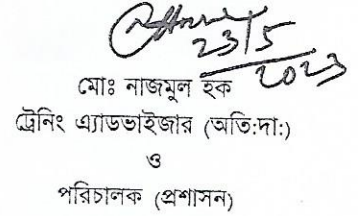 23/5
2023
মোঃ নাজমুল হক
ট্রেনিং এ্যাডভাইজার (অতি:দা:)
ও
পরিচালক (প্রশাসন)